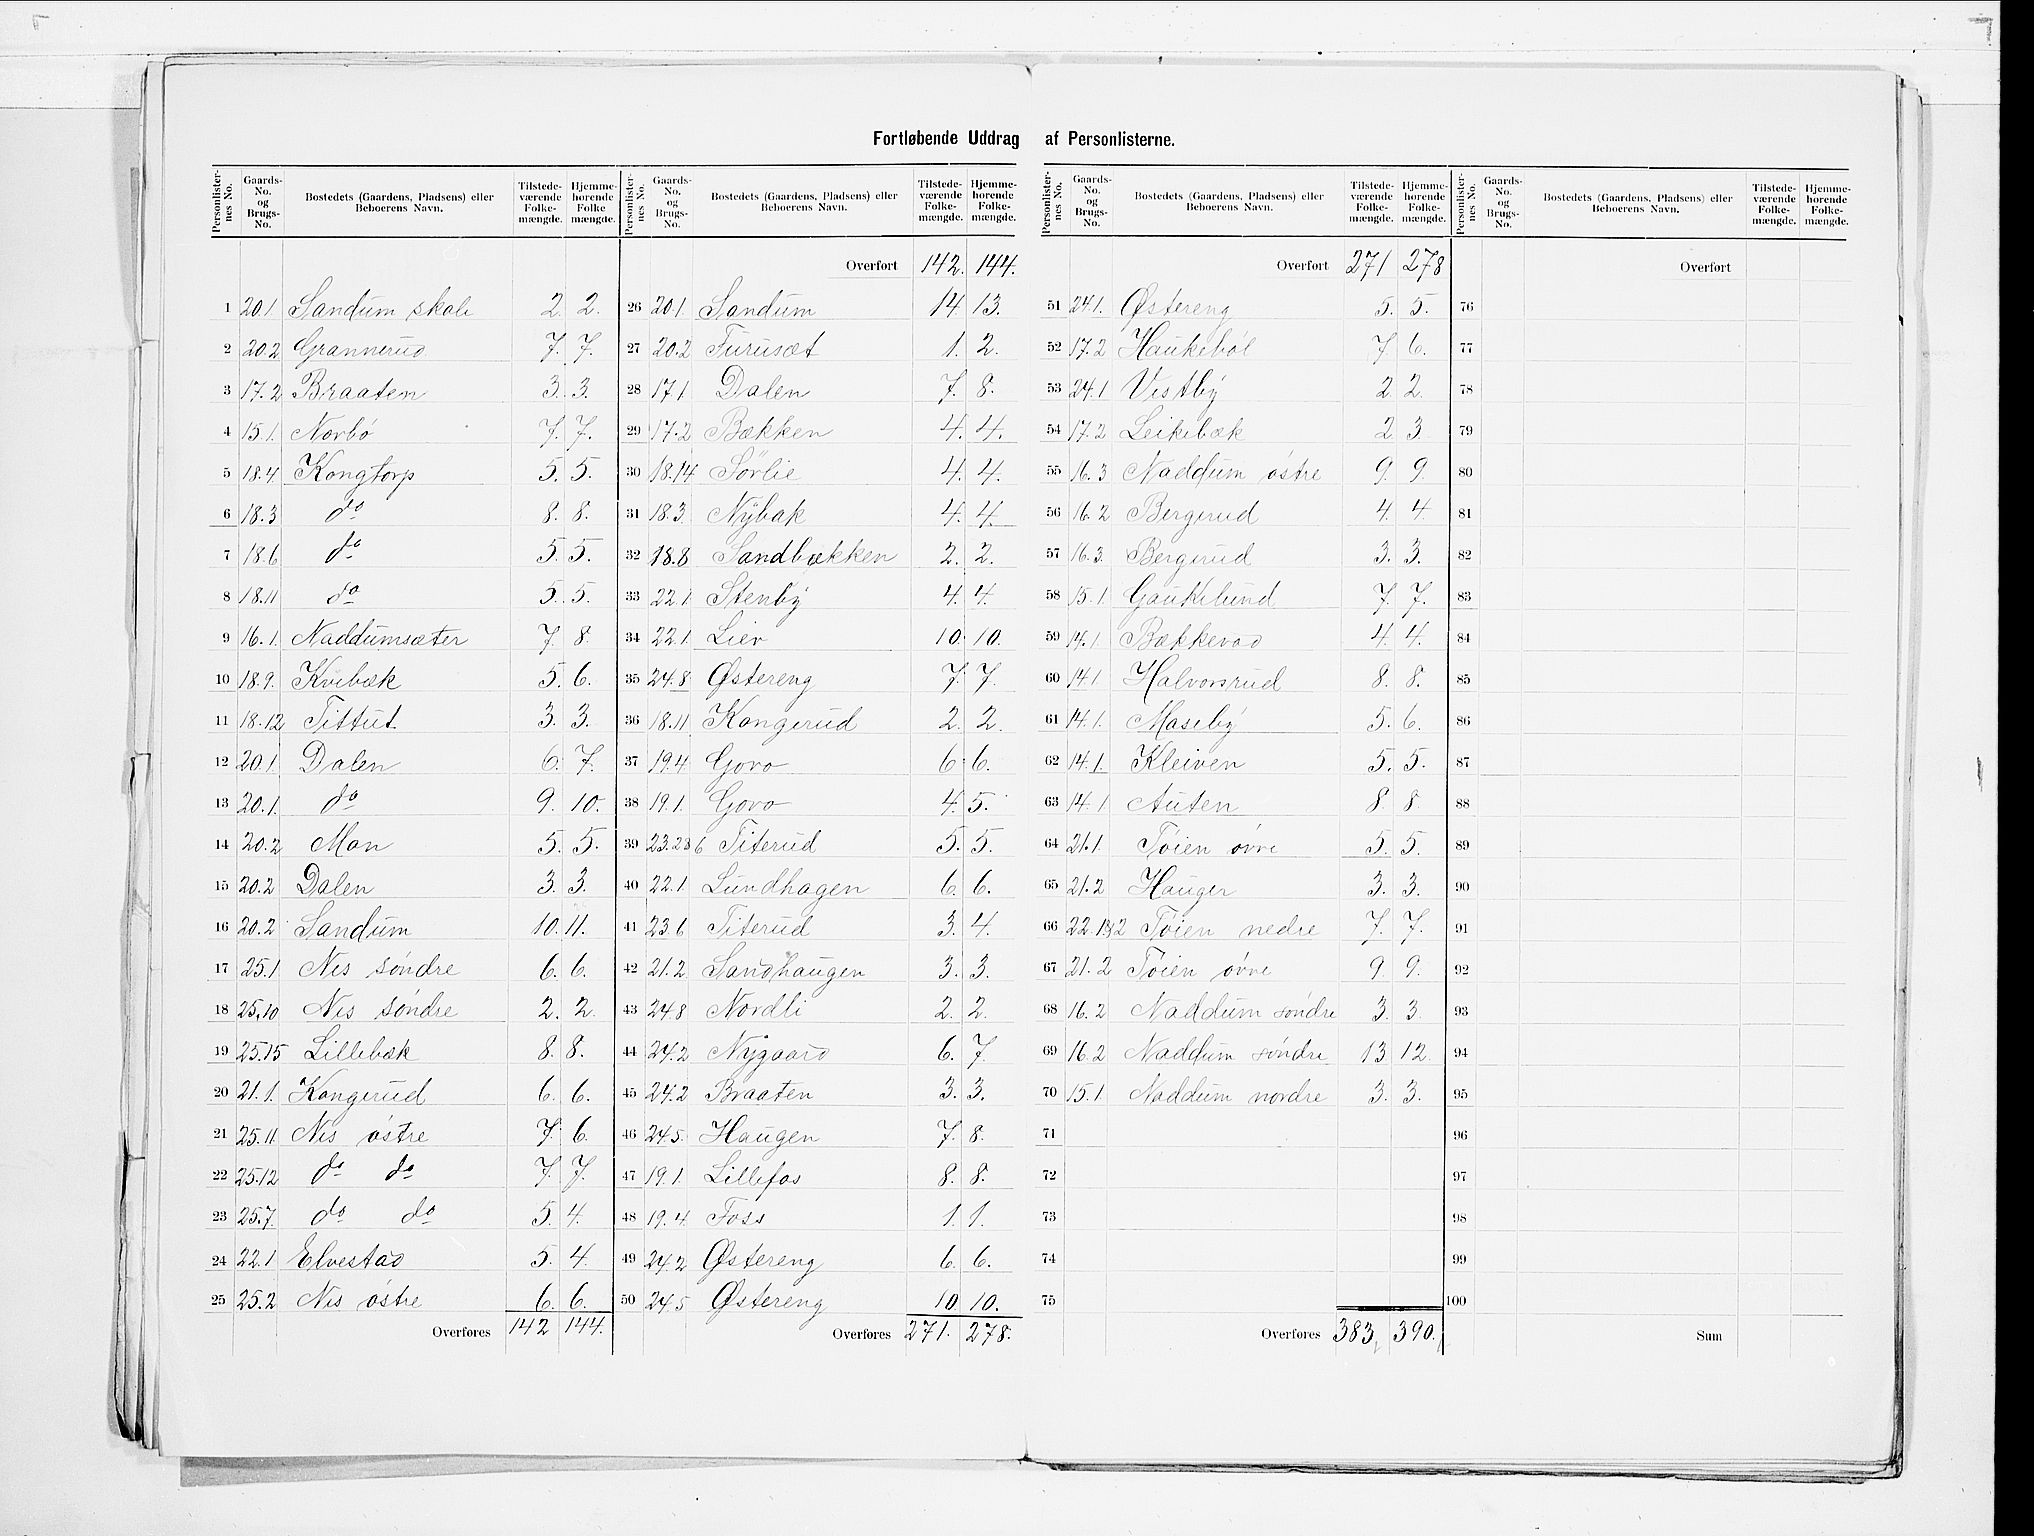 Fortløbende Uddrag af Personlisterne.
Personlisternes No. | Gaards-No. og Brugs-No. | Bostedets (Gaardens, Pladsens) eller Beboerens Navn. | Tilstedeværende Folkemængde. | Hjemmehorende Folkemængde.
1 20.1 Sandum skole 2. 2.
2 20.2 Grannerud 7. 7.
3 17.2 Braaten 3. 3.
4 15.1. Norbö 7. 7.
5 18.4 Kongtorp 5. 5.
6 18.3 do 8. 8.
7 18.6 do 5. 5.
8 18.11 do 5. 5.
9 16.1. Naddumsæter 7. 8.
10 18.9. Kvibæk 5. 6.
11 18.12 Tittut 3. 3.
12 20.1. Dalen 6. 7.
13 20.1. do 9. 10.
14 20.2 Mon 5. 5.
15 20.2 Dalen 3. 3.
16 20.2 Sandum 10. 11.
17 25.1 Nes söndre 6. 6.
18 25.10 Nes söndre 2. 2.
19 25.15 Lillebæk 8. 8.
20 21.1. Kongerud 6. 6.
21 25.11. Nes östre 7. 6.
22 25.12 do do 7. 7.
23 25.7. do do 5. 4.
24 22.1 Elvestad 5. 4.
25 25.2 Nes östre 6. 6.
Overføres 142 144.
Personlisternes No. | Gaards-No. og Brugs-No. | Bostedets (Gaardens, Pladsens) eller Beboerens Navn. | Tilstedeværende Folkemængde. | Hjemmehorende Folkemængde.
Overført 142. 144.
26 20.1. Sandum 14. 13.
27 20.2 Furusæt 1. 2.
28 17.1 Dalen 7. 8.
29 17.2 Bækken 4. 4.
30 18.14 Sörlie 4. 4.
31 18.3. Nÿbak 4. 4.
32 18.8 Sandbækken 2. 2.
33 22.1. Stenbÿ 4. 4.
34 22.1. Lier 10. 10.
35 24.8 Østereng 7. 7.
36 18.11 Kongerud 2. 2.
37 19.4 Govo 6. 6.
38 19.1. Govo 4. 5.
39 23.23 6 Titerud 5. 5.
40 22.1. Lundhagen 6. 6.
41 23.6 Titerud 3. 4.
42 21.2 Sandhaugen 3. 3.
43 24.8 Nordli 2. 2.
44 24.2 Nÿgaard 6. 7.
45 24.2 Braaten 3. 3.
46 24.5. Haugen 7. 8.
47 19.1. Lillefos 8. 8.
48 19.4. Foss 1. 1.
49 24.2 Østereng 6. 6.
50 24.5 Østereng 10 10.
Overføres 271. 278.
Personlisternes No. | Gaards-No. og Brugs-No. | Bostedets (Gaardens, Pladsens) eller Beboerens Navn. | Tilstedeværende Folkemængde. | Hjemmehorende Folkemængde.
Overført 271 278
51 24.1. Østereng 5. 5.
52 17.2 Haukeböl 7. 6.
53 24.1 Vestbÿ 2 2.
54 17.2 Leikebæk 2 3
55 16.3 Naddum östre 9. 9
56 16.2 Bergerud 4. 4
57 16.3. Bergerud 3. 3.
58 15.1. Gaukelund 7. 7.
59 14.1. Bækkevad 4. 4.
60 14.1 Halvorsrud 8. 8.
61 14.1. Masebÿ 5. 6.
62 14.1. Kleiven 5. 5.
63 14.1 Auten 8 8.
64 21.1. Töien övre 5. 5.
65 21.2 Hauger 3. 3.
66 Töien nedre 7. 7.
67 21.2 Töien övre 9. 9.
68 16.2 Naddum söndre 3. 3
69 16.2 Naddum söndre 13 12.
70 15.1 Naddum nordre 3. 3.
71
72
73
74
75
Overføres 383, 390.
Personlisternes No. | Gaards-No. og Brugs-No. | Bostedets (Gaardens, Pladsens) eller Beboerens Navn. | Tilstedeværende Folkemængde. | Hjemmehorende Folkemængde.
Overført
76
77
78
79
80
81
82
83
84
85
86
87
88
89
90
91
92
93
94
95
96
97
98
99
100
Sum